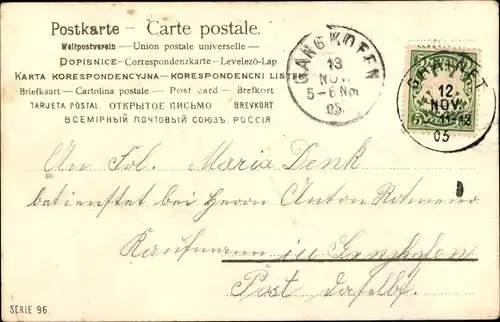 Postkarte – Carte postale.
Weltpostverein — Union postale universelle —
DOPISNICE — Correspondenzkarte – Levelező-Lap
KARTA KORESPONDENCYJNA – KORESPONDENCNI LISTEK
Briefkaart – Cartolina postale – Post card – Brefkort
TARJETA POSTAL ОТКРЫТОЕ ПИСЬМО BREVKORT.
ВСЕМIРНЫЙ ПОЧТОВЫЙ СОЮЗЪ. РОССIЯ
GANGKOFEN
13
NOV.
5–6 Nm
05.
12
NOV.
11-12
05
5
An Frl. Maria Denk
bei Herrn Anton
Kaufmann in Gangkofen
Post daselbst.
SERIE 96.